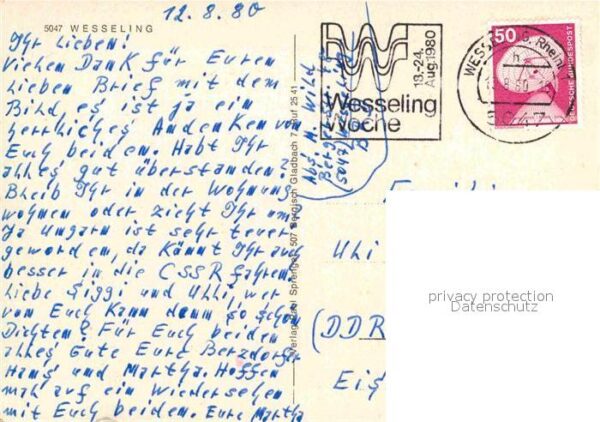 12.8.80
5047 WESSELING
Ihr Lieben!
Vielen Dank für Euren
lieben Brief mit dem
Bild, es ist ja ein
herrliches Andenken von
Euch beiden. Habt Ihr
alles gut überstanden?
Bleib Ihr in der Wohnung
wohnen oder zieht Ihr um
Ja Ungarn ist sehr teuer
geworden, da könnt Ihr auch
besser in die CSSR fahren
Liebe Siggi und Uhli, wer
von Euch kann denn so schön
Dichten? Für Euch beiden
alles Gute Eure Berzdorfer
Hans und Martha. Hoffen
mal auf ein Wiedersehen
mit Euch beiden. Eure Martha
Wesseling
Woche
13.-24.
Aug. 1980
50
DEUTSCHE BUNDESPOST
WESSELING, Rhein
5047
Abs. M. Wild
5047
507 Bergisch Gladbach
Uhli
(DDR
Eis
privacy protection
Datenschutz